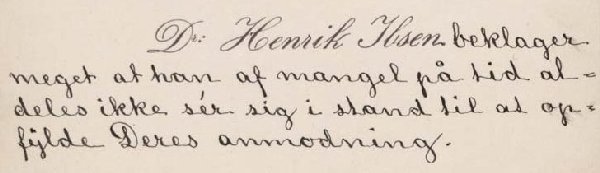 Dr: Henrik Ibsen beklager
meget at han af mangel på tid al=
deles ikke sér sig i stand til at op=
fylde Deres anmodning.